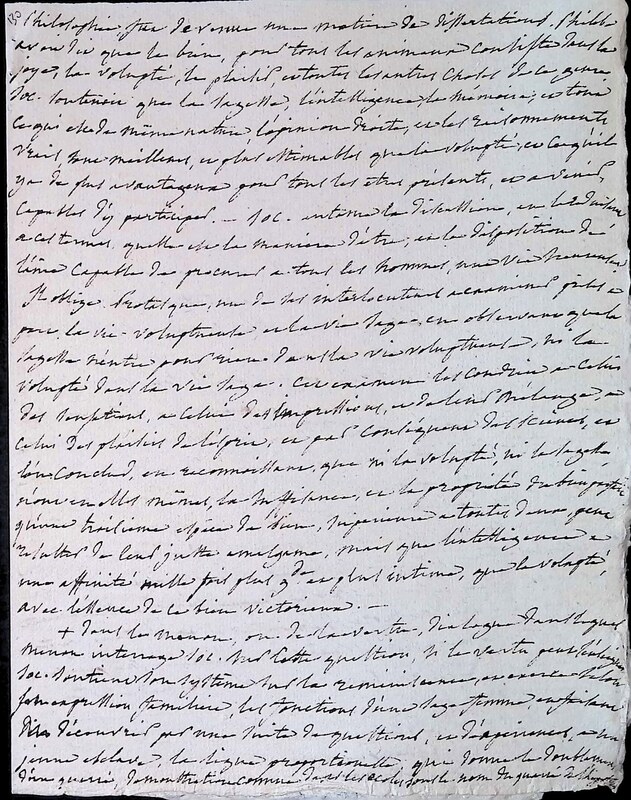 Philosophie fut devenue une matiere de dissertations. Phileb.
avou dit que le bien, pour tous les animaux consiste dans la
joye, la volupté, le plaisir, et toutes les autres choses de ce genre.
Soc. soutenoit que la sagesse, l'intelligence, la mémoire, et tout
ce qui est de même nature, l'opinion droite, et les raisonnements
vrais sont meilleurs, et plus estimables que la volupté, et ce qu'il
ya de plus avantageux pour tous les êtres présents, et avenir,
capables d'y participer. — Soc. entame la discussion, en la
a ces termes, quelle est la maniere d'être, et la disposition de
l'âme capable de procurer a tous les hommes, une vie heureuse.
Il oblige Protarque, un de ses interlocuteurs a examiner
la vie voluptueuse et la vie sage, en observant que la
sagesse n'entre pour rien dans la vie voluptueuse, ni la
volupté dans la vie sage. Cet examen les conduit a celui
des sensations, a celui des impressions, et de leur mélange, a
celui des plaisirs de l'esprit, et par conséquent des sciences, et
l'on conclud, en reconnoissant, que ni la volupté, ni la sagesse
n'ont en elles mêmes, la suffisance, et la propriété du bien parfait
qu'une troisieme espece de bien, superieure a toutes deux, peut
résulter de leur juste amalgame, mais que l'intelligence a
une affinité mille fois plus gde et plus intime, que la volupté,
avec l'essence de ce bien victorieux. —
+ dans le menon, ou de la vertu, dialogue dans lequel
menon interroge Soc. sur cette question, si la vertu peut
Soc. soutient son systême sur la reminiscence, en exerce selon
son expression familiere, les fonctions d'une sage femme, en faisant
découvrir par une suite de questions, et d'expériences, a un
jeune esclave, la ligne proportionelle, qui donne le doublement
d'un quarré, demonstration connue dans les écoles sous le nom du quarré de